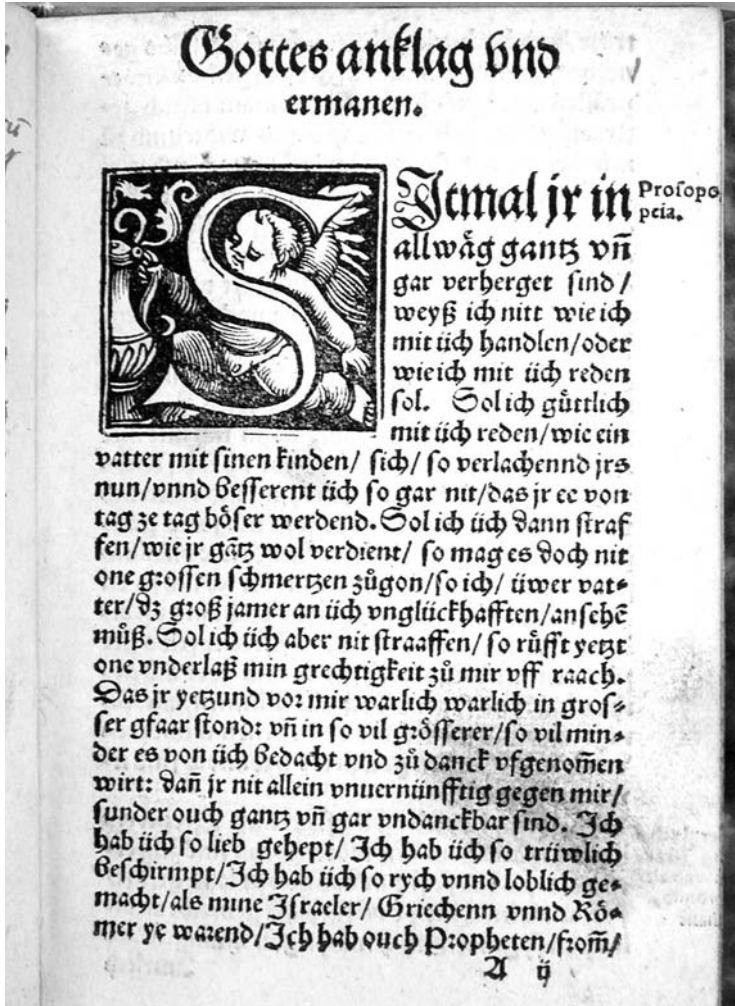 Gottes anklag vnd
ermanen.
SJtmal jr in
Prosopo
peia.
allwåg gantz vñ
gar verherget sind /
weyß ich nitt wie ich
mit üch handlen / oder
wie ich mit üch reden
sol. Sol ich gůttlich
mit üch reden / wie ein
vatter mit sinen kinden / sich / so verlachennd jrs
nun / vnnd besserent üch so gar nit / das jr ee von
tag ze tag bôser werdend. Sol ich üch dann straf
fen / wie jr gãtz wol verdient / so mag es doch nit
one grossen schmertzen zůgon / so ich / üwer vat⸗
ter / dz groß jamer an üch vnglückhafften / ansehẽ
můß. Sol ich üch aber nit straaffen / so růfft yetzt
one vnderlaß min grechtigkeit zů mir vff raach.
Das jr yetzund vor mir warlich warlich in gros⸗
ser gfaar stond: vñ in so vil grôsserer / so vil min⸗
der es von üch bedacht vnd zů danck vfgenom̃en
wirt: dañ jr nit allein vnuernünfftig gegen mir /
sunder ouch gantz vñ gar vndanckbar sind. Jch
hab üch so lieb gehept / Jch hab üch so trüwlich
beschirmpt / Jch hab üch so rych vnnd loblich ge⸗
macht / als mine Jsraeler / Griechenn vnnd Rô⸗
mer ye warend / Jch hab ouch Propheten / from̃ /
A ij